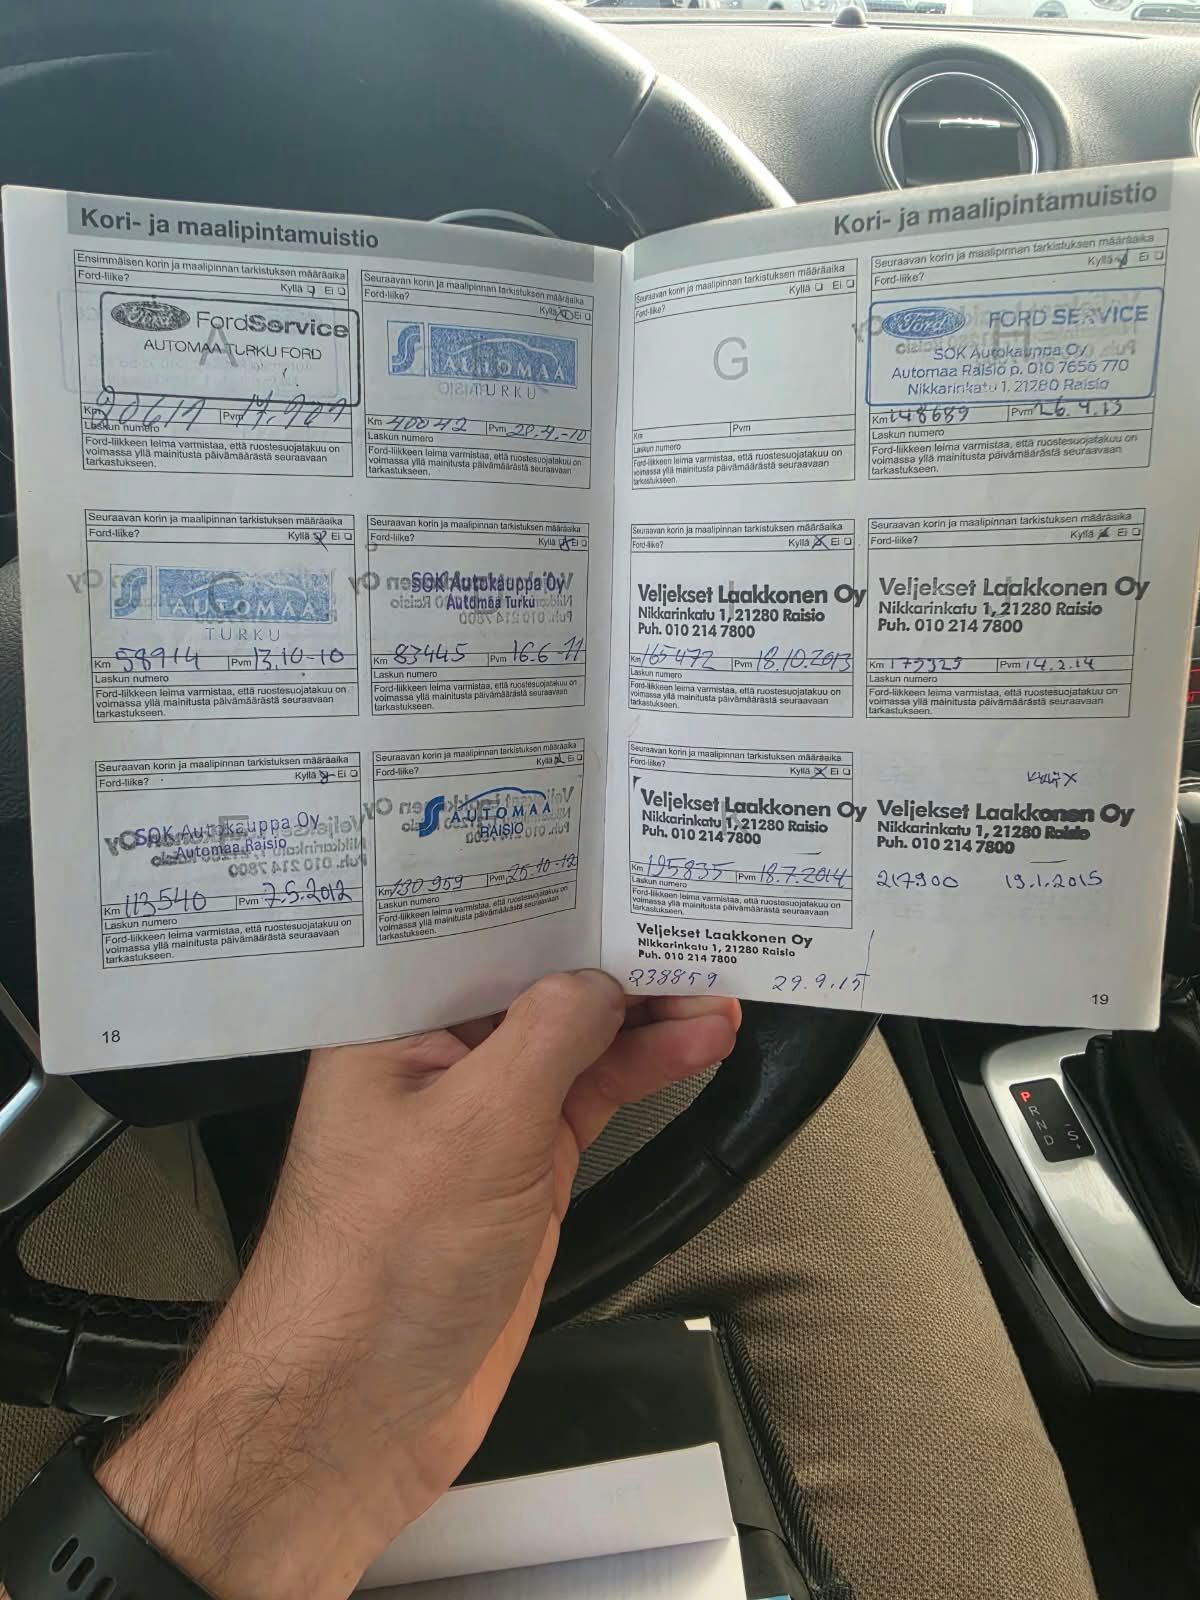 Kori- ja maalipintamuistio
Ensimmäisen korin ja maalipinnan tarkistuksen määräaika
Ford-liike?
Kyllä Ei
Ford FordService
AUTOMAA TURKU FORD
A
Km 20619 Pvm
Laskun numero
Ford-liikkeen leima varmistaa, että ruostesuojatakuu on
voimassa yllä mainitusta päivämäärästä seuraavaan
tarkastukseen.
Seuraavan korin ja maalipinnan tarkistuksen määräaika
Ford-liike?
Kyllä Ei
S AUTOMAA
TURKU
Km 40042 Pvm 28.4.-10
Laskun numero
Ford-liikkeen leima varmistaa, että ruostesuojatakuu on
voimassa yllä mainitusta päivämäärästä seuraavaan
tarkastukseen.
Seuraavan korin ja maalipinnan tarkistuksen määräaika
Ford-liike?
Kyllä Ei
S AUTOMAA
TURKU
Km 58914 Pvm 13.10-10
Laskun numero
Ford-liikkeen leima varmistaa, että ruostesuojatakuu on
voimassa yllä mainitusta päivämäärästä seuraavaan
tarkastukseen.
Seuraavan korin ja maalipinnan tarkistuksen määräaika
Ford-liike?
Kyllä Ei
SOK Autokauppa Oy
Automaa Turku
Km 83445 Pvm 16.6-11
Laskun numero
Ford-liikkeen leima varmistaa, että ruostesuojatakuu on
voimassa yllä mainitusta päivämäärästä seuraavaan
tarkastukseen.
Seuraavan korin ja maalipinnan tarkistuksen määräaika
Ford-liike?
Kyllä Ei
SOK Autokauppa Oy
Automaa Raisio
Km 113540 Pvm 7.5.2012
Laskun numero
Ford-liikkeen leima varmistaa, että ruostesuojatakuu on
voimassa yllä mainitusta päivämäärästä seuraavaan
tarkastukseen.
Seuraavan korin ja maalipinnan tarkistuksen määräaika
Ford-liike?
Kyllä Ei
S AUTOMAA
RAISIO
Km 130959 Pvm 25.10-12
Laskun numero
Ford-liikkeen leima varmistaa, että ruostesuojatakuu on
voimassa yllä mainitusta päivämäärästä seuraavaan
tarkastukseen.
18
Kori- ja maalipintamuistio
Seuraavan korin ja maalipinnan tarkistuksen määräaika
Ford-liike?
Kyllä Ei
G
Km Pvm
Laskun numero
Ford-liikkeen leima varmistaa, että ruostesuojatakuu on
voimassa yllä mainitusta päivämäärästä seuraavaan
tarkastukseen.
Seuraavan korin ja maalipinnan tarkistuksen määräaika
Ford-liike?
Kyllä Ei
Ford FORD SERVICE
SOK Autokauppa Oy
Automaa Raisio p. 010 7656 770
Nikkarinkatu 1, 21280 Raisio
Km 148689 Pvm 26.4.13
Laskun numero
Ford-liikkeen leima varmistaa, että ruostesuojatakuu on
voimassa yllä mainitusta päivämäärästä seuraavaan
tarkastukseen.
Seuraavan korin ja maalipinnan tarkistuksen määräaika
Ford-liike?
Kyllä Ei
Veljekset Laakkonen Oy
Nikkarinkatu 1, 21280 Raisio
Puh. 010 214 7800
Km 165472 Pvm 18.10.2013
Laskun numero
Ford-liikkeen leima varmistaa, että ruostesuojatakuu on
voimassa yllä mainitusta päivämäärästä seuraavaan
tarkastukseen.
Seuraavan korin ja maalipinnan tarkistuksen määräaika
Ford-liike?
Kyllä Ei
Veljekset Laakkonen Oy
Nikkarinkatu 1, 21280 Raisio
Puh. 010 214 7800
Km 179325 Pvm 14.2.14
Laskun numero
Ford-liikkeen leima varmistaa, että ruostesuojatakuu on
voimassa yllä mainitusta päivämäärästä seuraavaan
tarkastukseen.
Seuraavan korin ja maalipinnan tarkistuksen määräaika
Ford-liike?
Kyllä Ei
Veljekset Laakkonen Oy
Nikkarinkatu 1, 21280 Raisio
Puh. 010 214 7800
Km 195835 Pvm 18.7.2014
Laskun numero
Ford-liikkeen leima varmistaa, että ruostesuojatakuu on
voimassa yllä mainitusta päivämäärästä seuraavaan
tarkastukseen.
Veljekset Laakkonen Oy
Nikkarinkatu 1, 21280 Raisio
Puh. 010 214 7800
217900 19.1.2015
Veljekset Laakkonen Oy
Nikkarinkatu 1, 21280 Raisio
Puh. 010 214 7800
238859 29.9.15
19
P
R
N
D
S
+